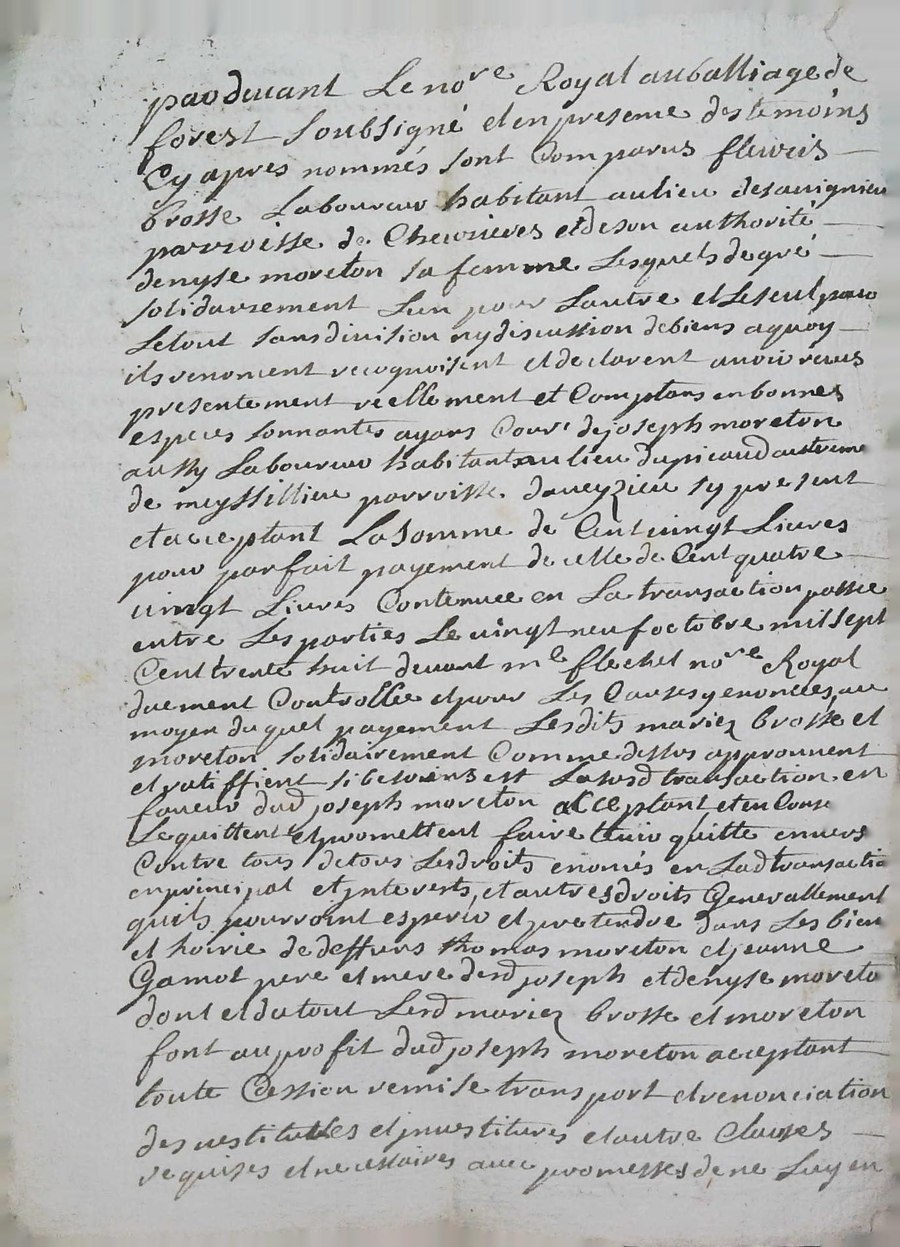 pardevant Le no.re Royal au balliage de
forest soubsigné et en presence des temoins
Cy apres nommés sont Comparus fleuris
brosse Laboureur habitant au lieu de sauignieu
parroisse de Chevrieres et de son authorité
denyse moreton sa femme Lesquels de gré
solidairement L'un pour Lautre et Le seul pour
Le tout sans division ny discussion de biens a quoy
ils renoncent recognoissent et declarent auoir reçus
presentement reellement et Comptans en bonnes
especes sonnantes ayans Cours de joseph moreton
aussy Laboureur habitant au lieu du picaud
de meyssillieu parroisse daveyzieu sy present
et acceptant La somme de Cent vingt Livres
pour parfait payement de celle de Cent quatre
vingt Livres Contenue en La transaction passée
entre Les parties Le vingt neuf octobre mil sept
Cent trente huit devant me flechet no.re Royal
duement Controllée et pour Les Causes y enoncées, au
moyen duquel payement Lesdits mariez brosse et
moreton solidairement Comme dessus approuvent
et ratiffient si besoins est La susd transaction en
faveur dud joseph moreton acceptant et en Conse
Le quittent et promettent faire tenir quitte envers
Contre tous de tous Les droits enoncés en Lad transactio
en principal et jnterests, et autres droits Generallement
quils pourroint esperer et pretendre dans Les bien
et hoirie de deffuns thomas moreton et jeanne
Gamot pere et mere desd joseph et denyse moreto
dont et du tout Lesd mariez brosse et moreton
font au profit dud joseph moreton acceptant
toute Cession remise transport et renonciation
des vestitures et jnvestitures et autre Clauses
requises et necessaires avec promesses de ne Luy en